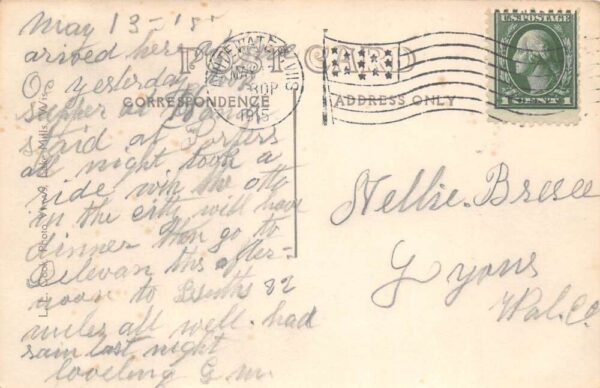 May 13-15
arrived here at
O. yesterday
supper at
staid at Porters
all night took a
ride with the otto
in the citty will have
dinner then go to
Delevan this after-
noon to Smiths 82
miles all well. had
rain last night
loveling G m.
POST CARD
CORRESPONDENCE
ADDRESS ONLY
WHITEWATER, WIS
MAY
30P
1915
U.S. POSTAGE
1 CENT 1
Nellie Breese
Lyons
Wal. Co.
L.L. Cook Photo
Lake Mills, Wis